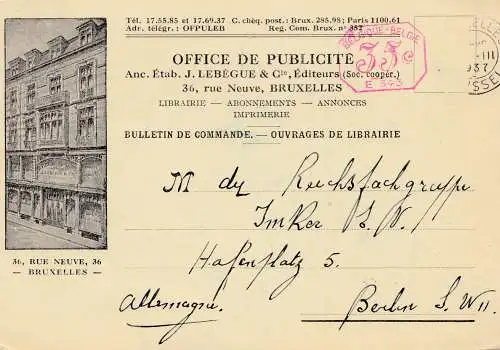 Tél. 17.55.85 et 17.69.37 C. chèq. post.: Brux. 285.98; Paris 1100.61
Adr. télégr.: OFPULEB Reg. Com. Brux. n° 352
BELGIQUE-BELGIË
E 343
1937
OFFICE DE PUBLICITÉ
Anc. Étab. J. LEBÈGUE & Cie, Éditeurs (Soc. coopér.)
36, rue Neuve, BRUXELLES
LIBRAIRIE — ABONNEMENTS — ANNONCES
IMPRIMERIE
BULLETIN DE COMMANDE. — OUVRAGES DE LIBRAIRIE
36, RUE NEUVE, 36
— BRUXELLES —
Reichsfachgruppe
Imker
Hafenplatz 5.
Allemagne. Berlin S.W 11.